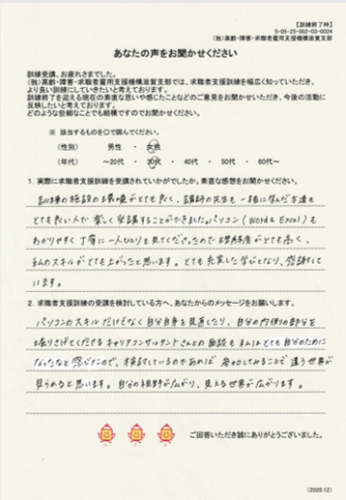 【訓練終了時】
5-05-25-002-03-0024
(独)高齢・障害・求職者雇用支援機構滋賀支部
あなたの声をお聞かせください
訓練受講、お疲れさまでした。
(独)高齢・障害・求職者雇用支援機構滋賀支部では、求職者支援訓練を幅広く知っていただき、
より良い訓練にしていきたいと考えております。
訓練終了を迎える現在の素直な思いや感じたことなどのご意見をお聞かせいただき、今後の活動に
反映したいと考えております。
どのような些細なことでも結構ですのでお聞かせください。
※ 該当するものを○で囲んでください。
(性別) 男性 ・ 女性
(年代) ~20代 ・ 30代 ・ 40代 ・ 50代 ・ 60代~
1. 実際に求職者支援訓練を受講されていかがでしたか。素直な感想をお聞かせください。
訓練の施設の環境がとても良く、講師の先生も一緒に学んだ友達も
とても良い人で楽しく受講することができました。パソコン(Word & Excel)も
わかりやすく丁寧に一人ひとりを見てくださったので理解度がとても高く、
私のスキルがとても上がったと思います。とても充実した学びとなり、感謝して
います。
2. 求職者支援訓練の受講を検討している方へ、あなたからのメッセージをお願いします。
パソコンのスキルだけでなく自分自身を見直したり、自分の内側の部分を
掘りさげてくださるキャリアコンサルタントさんとの面談も私はとても自分のために
なったなと感じたので、検討しているのであれば、参加してみることで違う世界が
見られると思います。自分の視野が広がり、見える世界が広がります。
ご回答いただき誠にありがとうございました。
(2020.12)